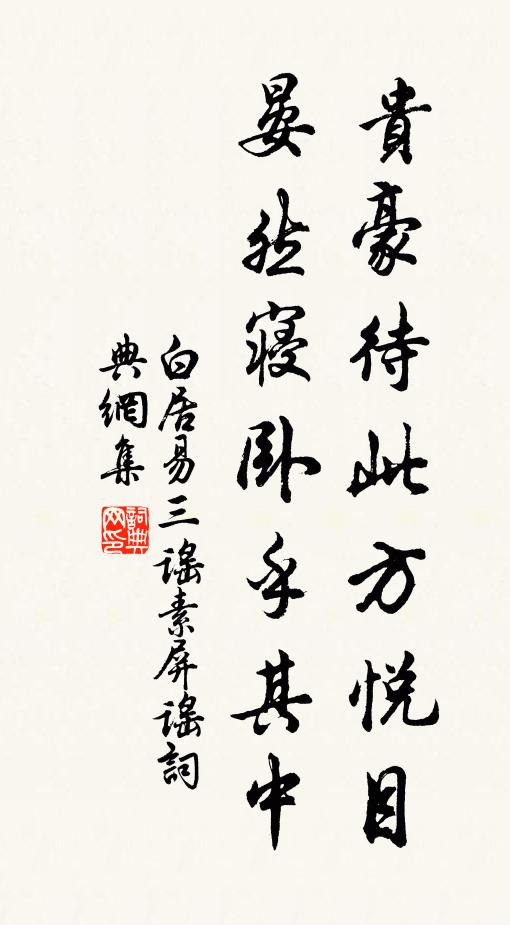 貴豪待此方悅目
晏然寢卧乎其中
白居易三謠素屏謠詞
典網集
詞典網印